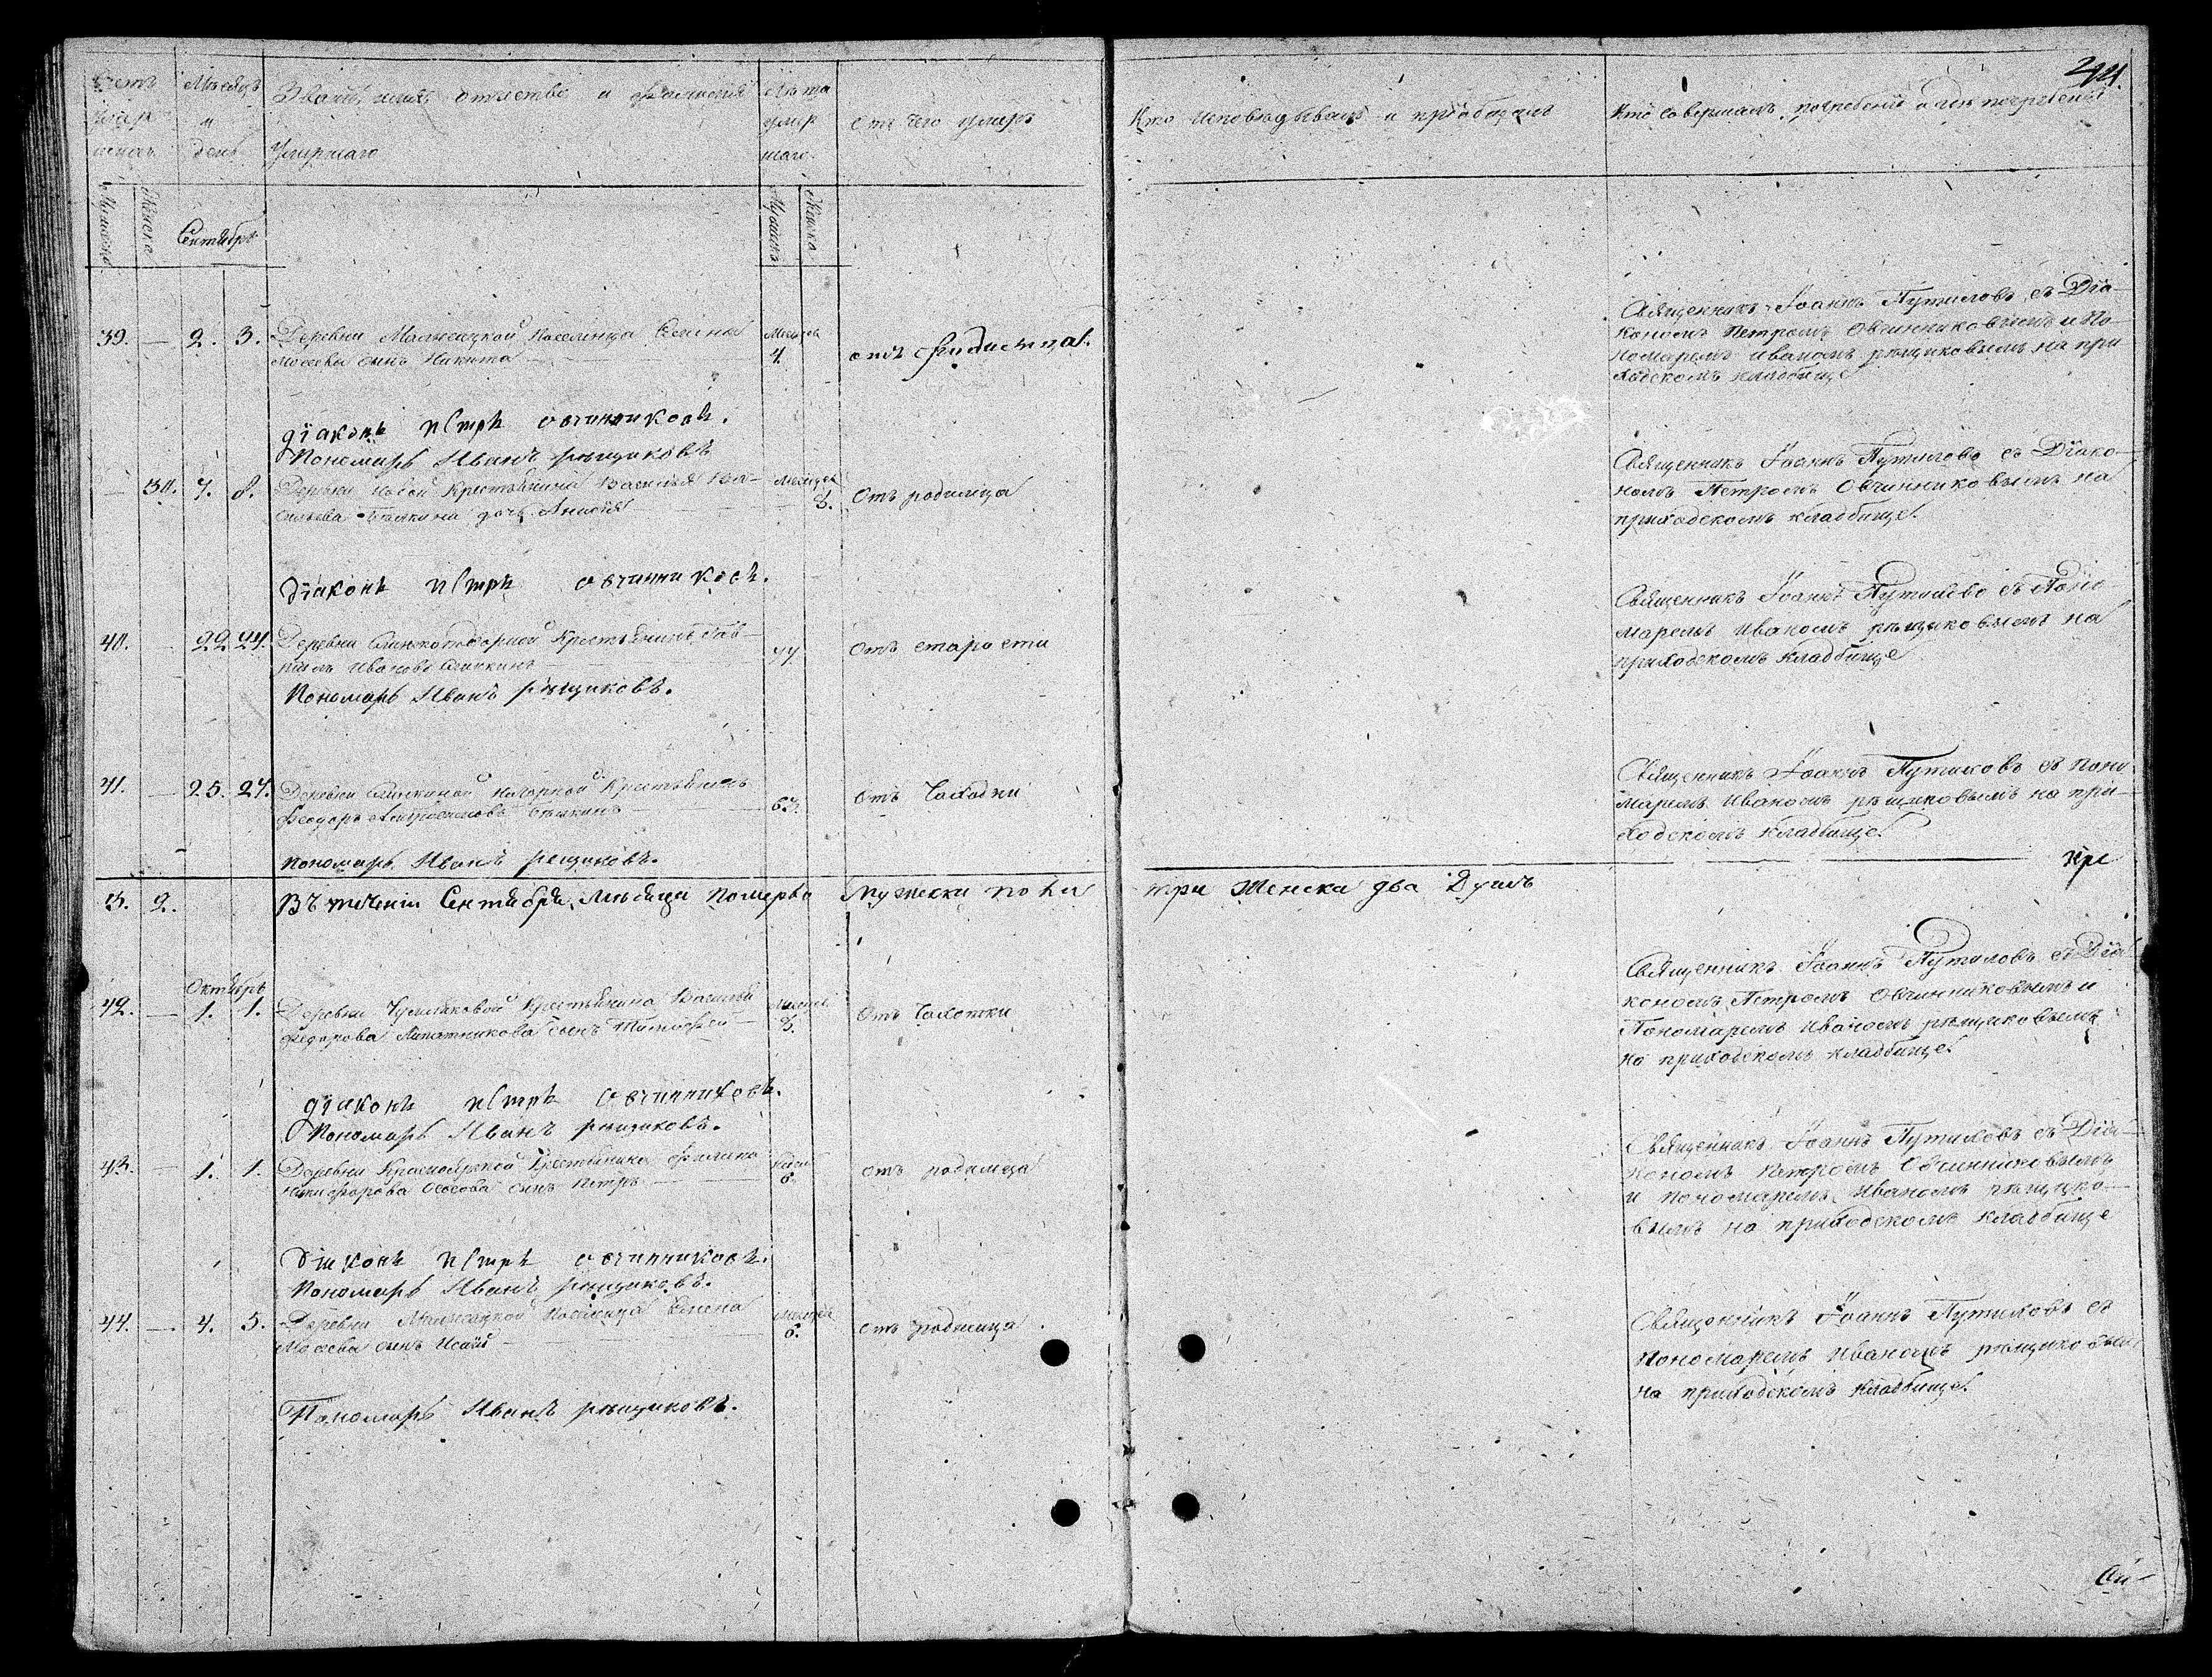 44.
Счетъ умершихъ
Мѣсяцъ и день
Званіе, имя, отчество и фамилія умершаго
Лѣта умершаго
Отъ чего умеръ
Кто исповѣдывалъ и пріобщалъ
Кто совершалъ погребеніе и гдѣ погребены
Мужеска
Женска
Сентябрь
Мужеска
Женска
39. — 2. 3. Деревни Поселенца Семена
Моисеева сынъ Никита
Мѣсяца
4.
отъ родимца.
Священникъ Іоаннъ Путиловъ съ Діа-
кономъ Петромъ Овчинниковымъ и По-
номаремъ Иваномъ рѣщиковымъ на при
ходскомъ кладбище
діаконъ петръ овчинниковъ.
Пономарь Иванъ рѣщиковъ
— 30. 7. 8. Деревни Новой Крестьянина Василья Ва-
сильева дочь Анисія
Мѣсяца
3.
Отъ родимца
Священникъ Іоаннъ Путиловъ съ Діако-
номъ Петромъ Овчинниковымъ на
приходскомъ кладбище.
діаконъ петръ овчинниковъ.
40. — 22. 24. Деревни Крестьянинъ Гав-
риилъ Ивановъ
77.
Отъ старости
Священникъ Іоаннъ Путиловъ съ Поно-
маремъ Иваномъ рѣщиковымъ на
приходскомъ кладбище
Пономарь Иванъ рѣщиковъ.
41. — 25. 27. Деревни Крестьянинъ
Феодоръ
67.
Отъ Чахотки
Священникъ Іоаннъ Путиловъ съ Поно-
маремъ Иваномъ рѣщиковымъ на при-
ходскомъ кладбище.
пономарь Иванъ рещиковъ.
3. 2. Въ теченіи Сентября мѣсяца померло Мужеска пола три Женска два Душъ
Октябрь
42. — 1. 1. Деревни Чумляковой Крестьянина Василья
Федорова сынъ Тимофей
Мѣсяца
3.
Отъ Чахотки
Священникъ Іоаннъ Путиловъ съ Діа-
кономъ Петромъ Овчинниковымъ и
Пономаремъ Иваномъ рѣщиковымъ
на приходскомъ кладбище.
діаконъ петръ овчинниковъ.
Пономарь Иванъ рѣщиковъ.
43. — 1. 1. Деревни Красноярской Крестьянина Филипа
Никифорова сынъ Петръ
6.
отъ родимца
Священникъ Іоаннъ Путиловъ съ Діа-
кономъ Петромъ Овчинниковымъ
и Пономаремъ Иваномъ рѣщико-
вымъ на приходскомъ кладбище
діаконъ петръ овчинниковъ.
Пономарь Иванъ рѣщиковъ.
44. — 4. 5. Деревни Поселенца Семена
Моисеева сынъ Исаія
Мѣсяца
6.
отъ родимца
Священникъ Іоаннъ Путиловъ съ
Пономаремъ Иваномъ рѣщиковымъ
на приходскомъ кладбище.
Пономарь Иванъ рѣщиковъ.